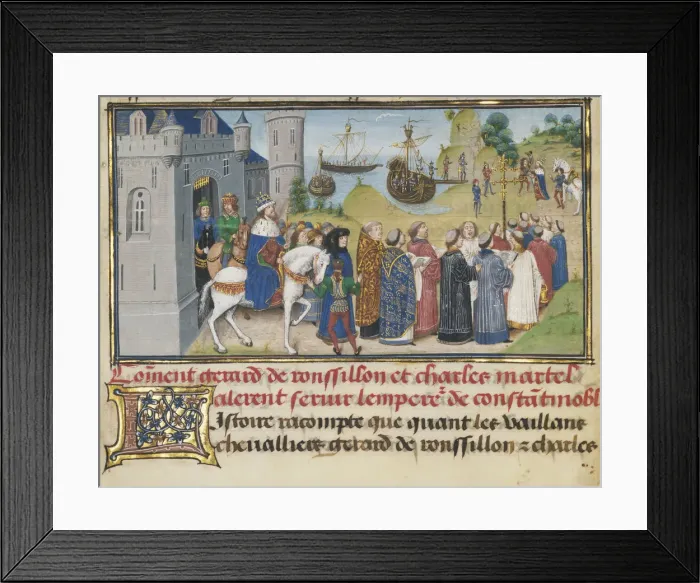 Com̄ent gerard de roussillon et charles martel
alerent seruir lempere.r de constātinobl
Istoire racompte que quant les vaillans
cheualliers gerard de roussillon z charles